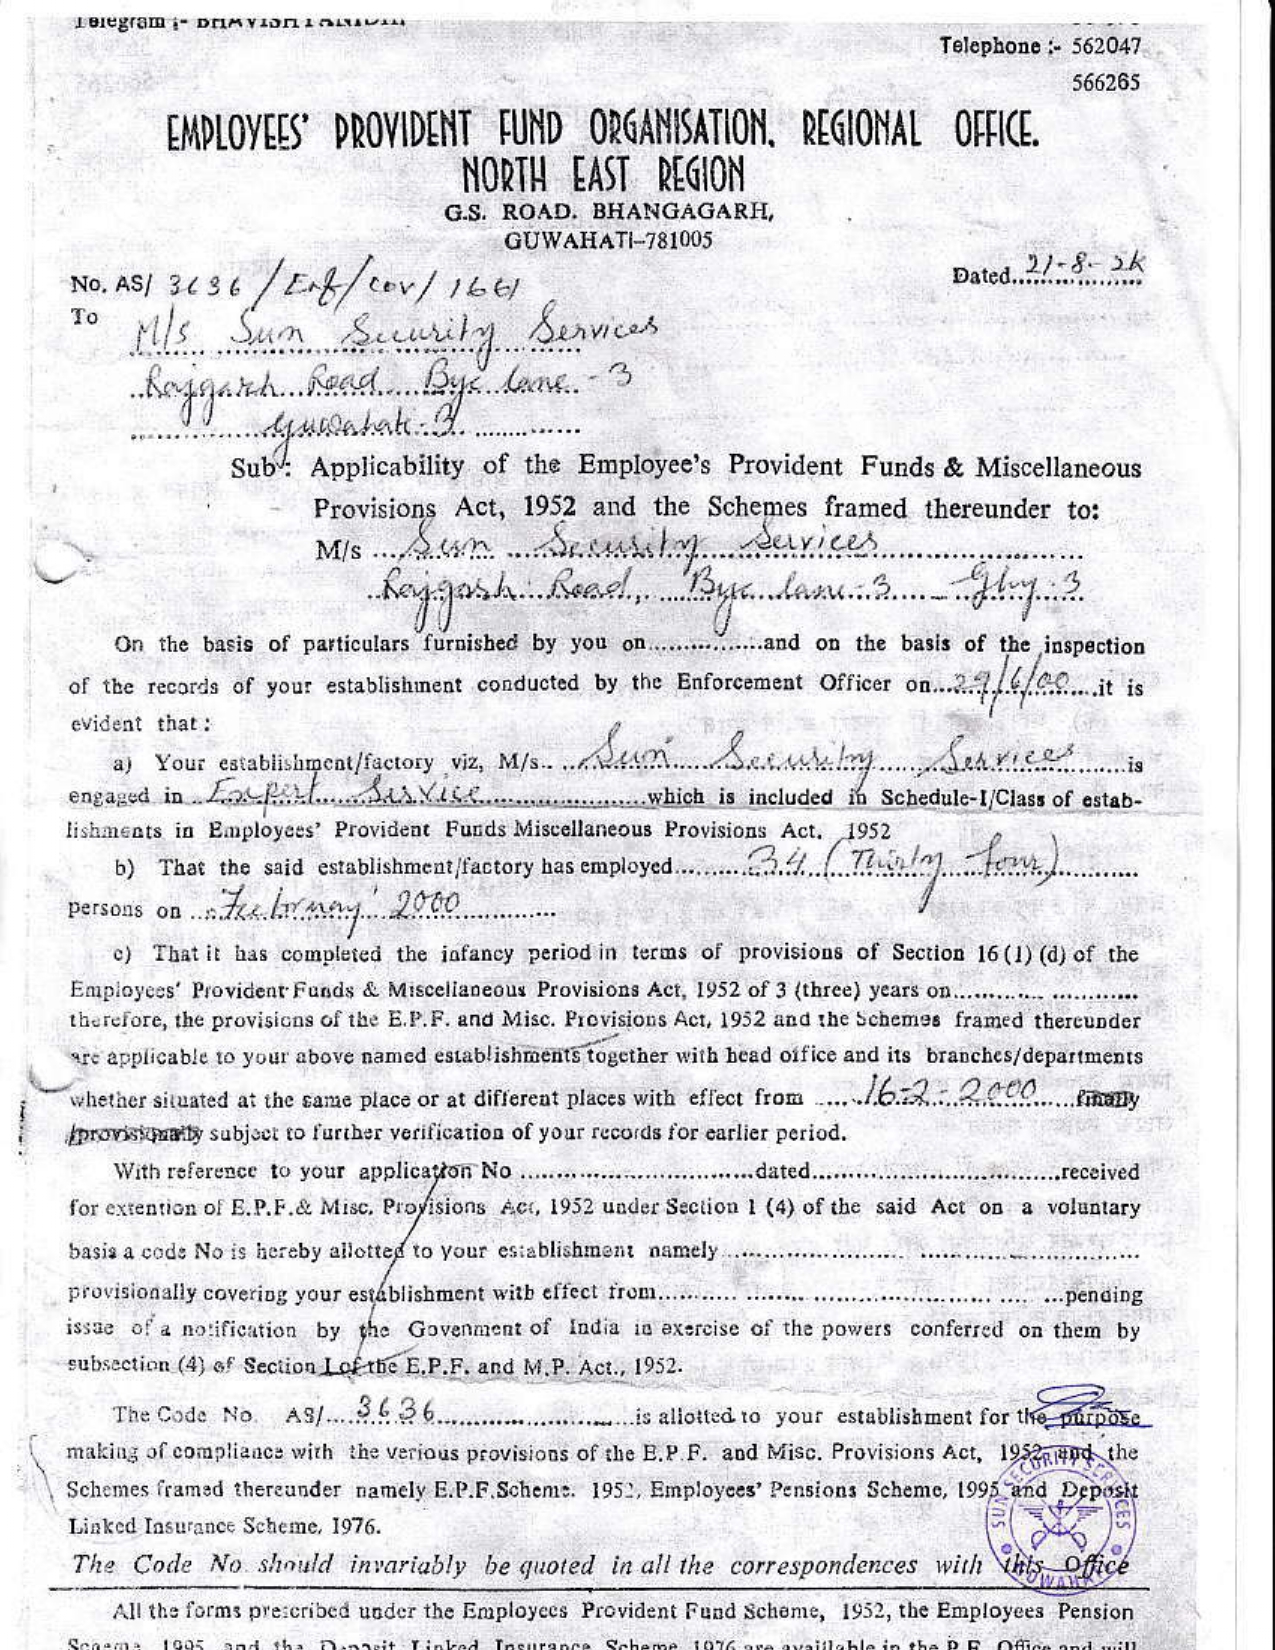 Telegram :- BHAVISHYANIDHI
Telephone :- 562047
566265
EMPLOYEES' PROVIDENT FUND ORGANISATION, REGIONAL OFFICE.
NORTH EAST REGION
G.S. ROAD. BHANGAGARH,
GUWAHATI-781005
No. AS/ 3636 /Enf/Cov/ 1661
Dated..21-8-2K
To
M/s Sun Security Services
Rajgarh Road Bye lane - 3
Guwahati-3
Sub : Applicability of the Employee's Provident Funds & Miscellaneous
Provisions Act, 1952 and the Schemes framed thereunder to:
M/s ...Sun Security Services
Rajgarh Road, Bye lane-3 - Ghy-3
On the basis of particulars furnished by you on...............and on the basis of the inspection
of the records of your establishment conducted by the Enforcement Officer on...29/6/00....it is
evident that :
a) Your establishment/factory viz, M/s.. Sun Security Services ......is
engaged in ..Expert Service..................which is included in Schedule-I/Class of estab-
lishments in Employees' Provident Funds Miscellaneous Provisions Act. 1952
b) That the said establishment/factory has employed........34 (Thirty four)..........
persons on ..February' 2000..............
c) That it has completed the infancy period in terms of provisions of Section 16(1) (d) of the
Employees' Provident Funds & Miscellaneous Provisions Act, 1952 of 3 (three) years on............. ............
therefore, the provisions of the E.P.F. and Misc. Provisions Act, 1952 and the Schemes framed thereunder
are applicable to your above named establishments together with head office and its branches/departments
whether situated at the same place or at different places with effect from .....16-2-2000....finally
/provisionally subject to further verification of your records for earlier period.
With reference to your application No .................................dated...................................received
for extention of E.P.F.& Misc. Provisions Act, 1952 under Section 1 (4) of the said Act on a voluntary
basis a code No is hereby allotted to your establishment namely.........................................................
provisionally covering your establishment with effect from........... ......................... ...... .... ...pending
issue of a notification by the Govenment of India in exercise of the powers conferred on them by
subsection (4) of Section 1 of the E.P.F. and M.P. Act., 1952.
The Code No. AS/....3636............................is allotted to your establishment for the purpose
making of compliance with the verious provisions of the E.P.F. and Misc. Provisions Act, 1952 and the
Schemes framed thereunder namely E.P.F.Scheme. 1952, Employees' Pensions Scheme, 1995 and Deposit
Linked Insurance Scheme, 1976.
SUN SECURITY SERVICES
GUWAHATI
The Code No. should invariably be quoted in all the correspondences with this Office
All the forms prescribed under the Employees Provident Fund Scheme, 1952, the Employees Pension
Scheme 1995 and the Deposit Linked Insurance Scheme 1976 are availlable in the P.F. Office and will